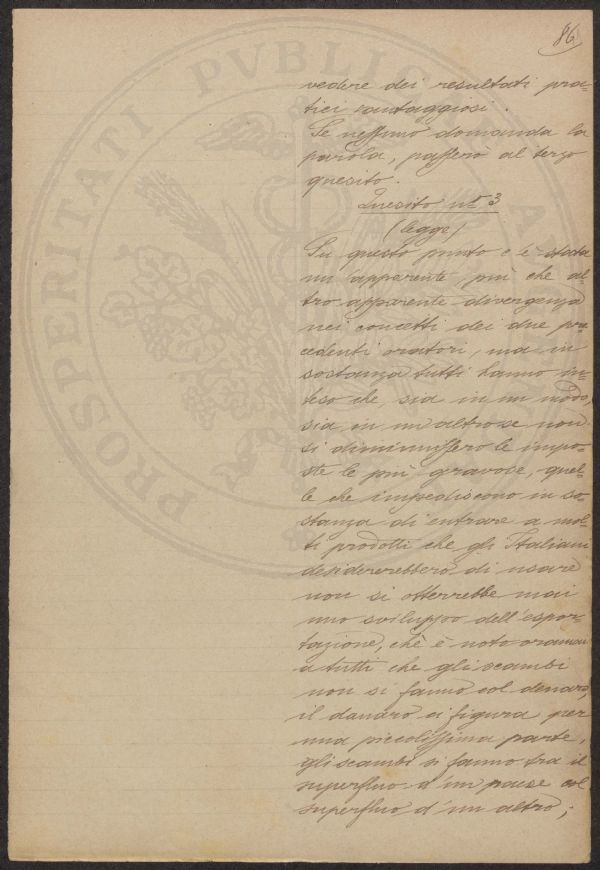 86
vedere dei resultati pra-
tici vantaggiosi.
Se nessuno domanda la
parola, passerò al terzo
quesito.
Quesito n° 3
(legge)
Su questo punto c'è stata
un'apparente, più che al-
tro apparente divergenza
nei concetti dei due pre-
cedenti oratori, ma in
sostanza tutti hanno in-
teso che, sia in un modo,
sia in un altro se non
si diminuissero le impo-
ste le più gravose, quel-
le che impediscono in so-
stanza di entrare a mol-
ti prodotti che gli Italiani
desidererebbero di usare
non si otterrebbe mai
uno sviluppo dell'espor-
tazione, chè è noto oramai
a tutti che gli scambi
non si fanno col denaro,
il danaro ci figura per
una piccolissima parte,
gli scambi si fanno tra il
superfluo d'un paese col
superfluo d'un altro;
PROSPERITATI PVBLICAE